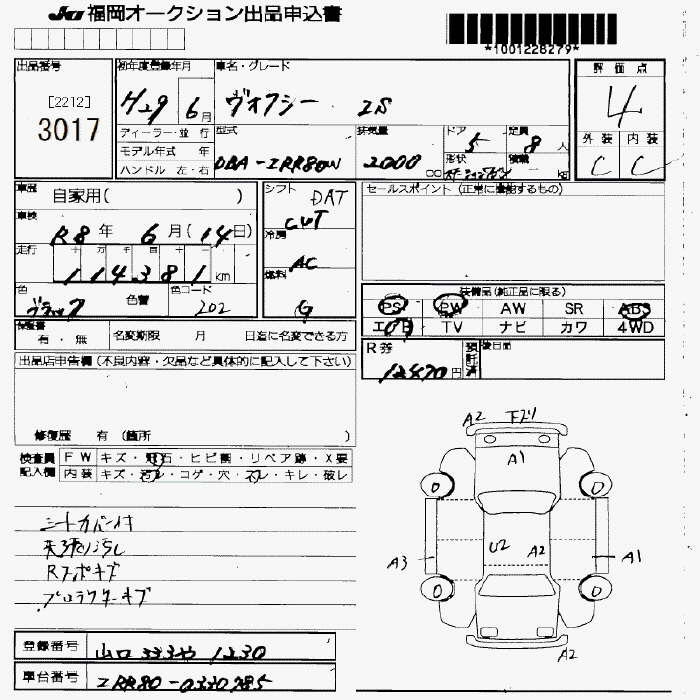 JU 福岡オークション出品申込書
*1001228279*
出品番号 初年度登録年月 車名・グレード 評価点
[2212]
3017
H29 6月 ヴォクシー ZS 4
ディーラー・並行 型式 排気量 ドア 定員 外装 内装
モデル年式 年 DBA-ZRR80W 2000 CC 5 8人 C C
ハンドル 左・右 形状 積載 kg
車歴 自家用( ) シフト DAT セールスポイント (正常に機能するもの)
CVT
車検 R8年 6月(14日) 冷房 AC
走行 十 万 千 百 十 一
114381 km 燃料 G
色 ブラック 色替 色コード 202
装備品(純正品に限る)
PS PW AW SR ABS
エアB TV ナビ カワ 4WD
保証書 有・無 名変期限 月 日迄に名変できる方
R券 12470円 預託済 後日函
出品店申告欄 (不良内容・欠品など具体的に記入して下さい)
修復歴 有 (箇所 )
検査員 FW キズ・飛石・ヒビ割・リペア跡・X要
記入欄 内装 キズ・汚レ・コゲ・穴・スレ・キレ・破レ
シートカバー付
天張り汚レ
プロテクターキズ
A2 下ズリ
A1
0 0
A3 U2 A2 A1
0 0
A2
登録番号 山口 333や 1230
車台番号 ZRR80-0330785